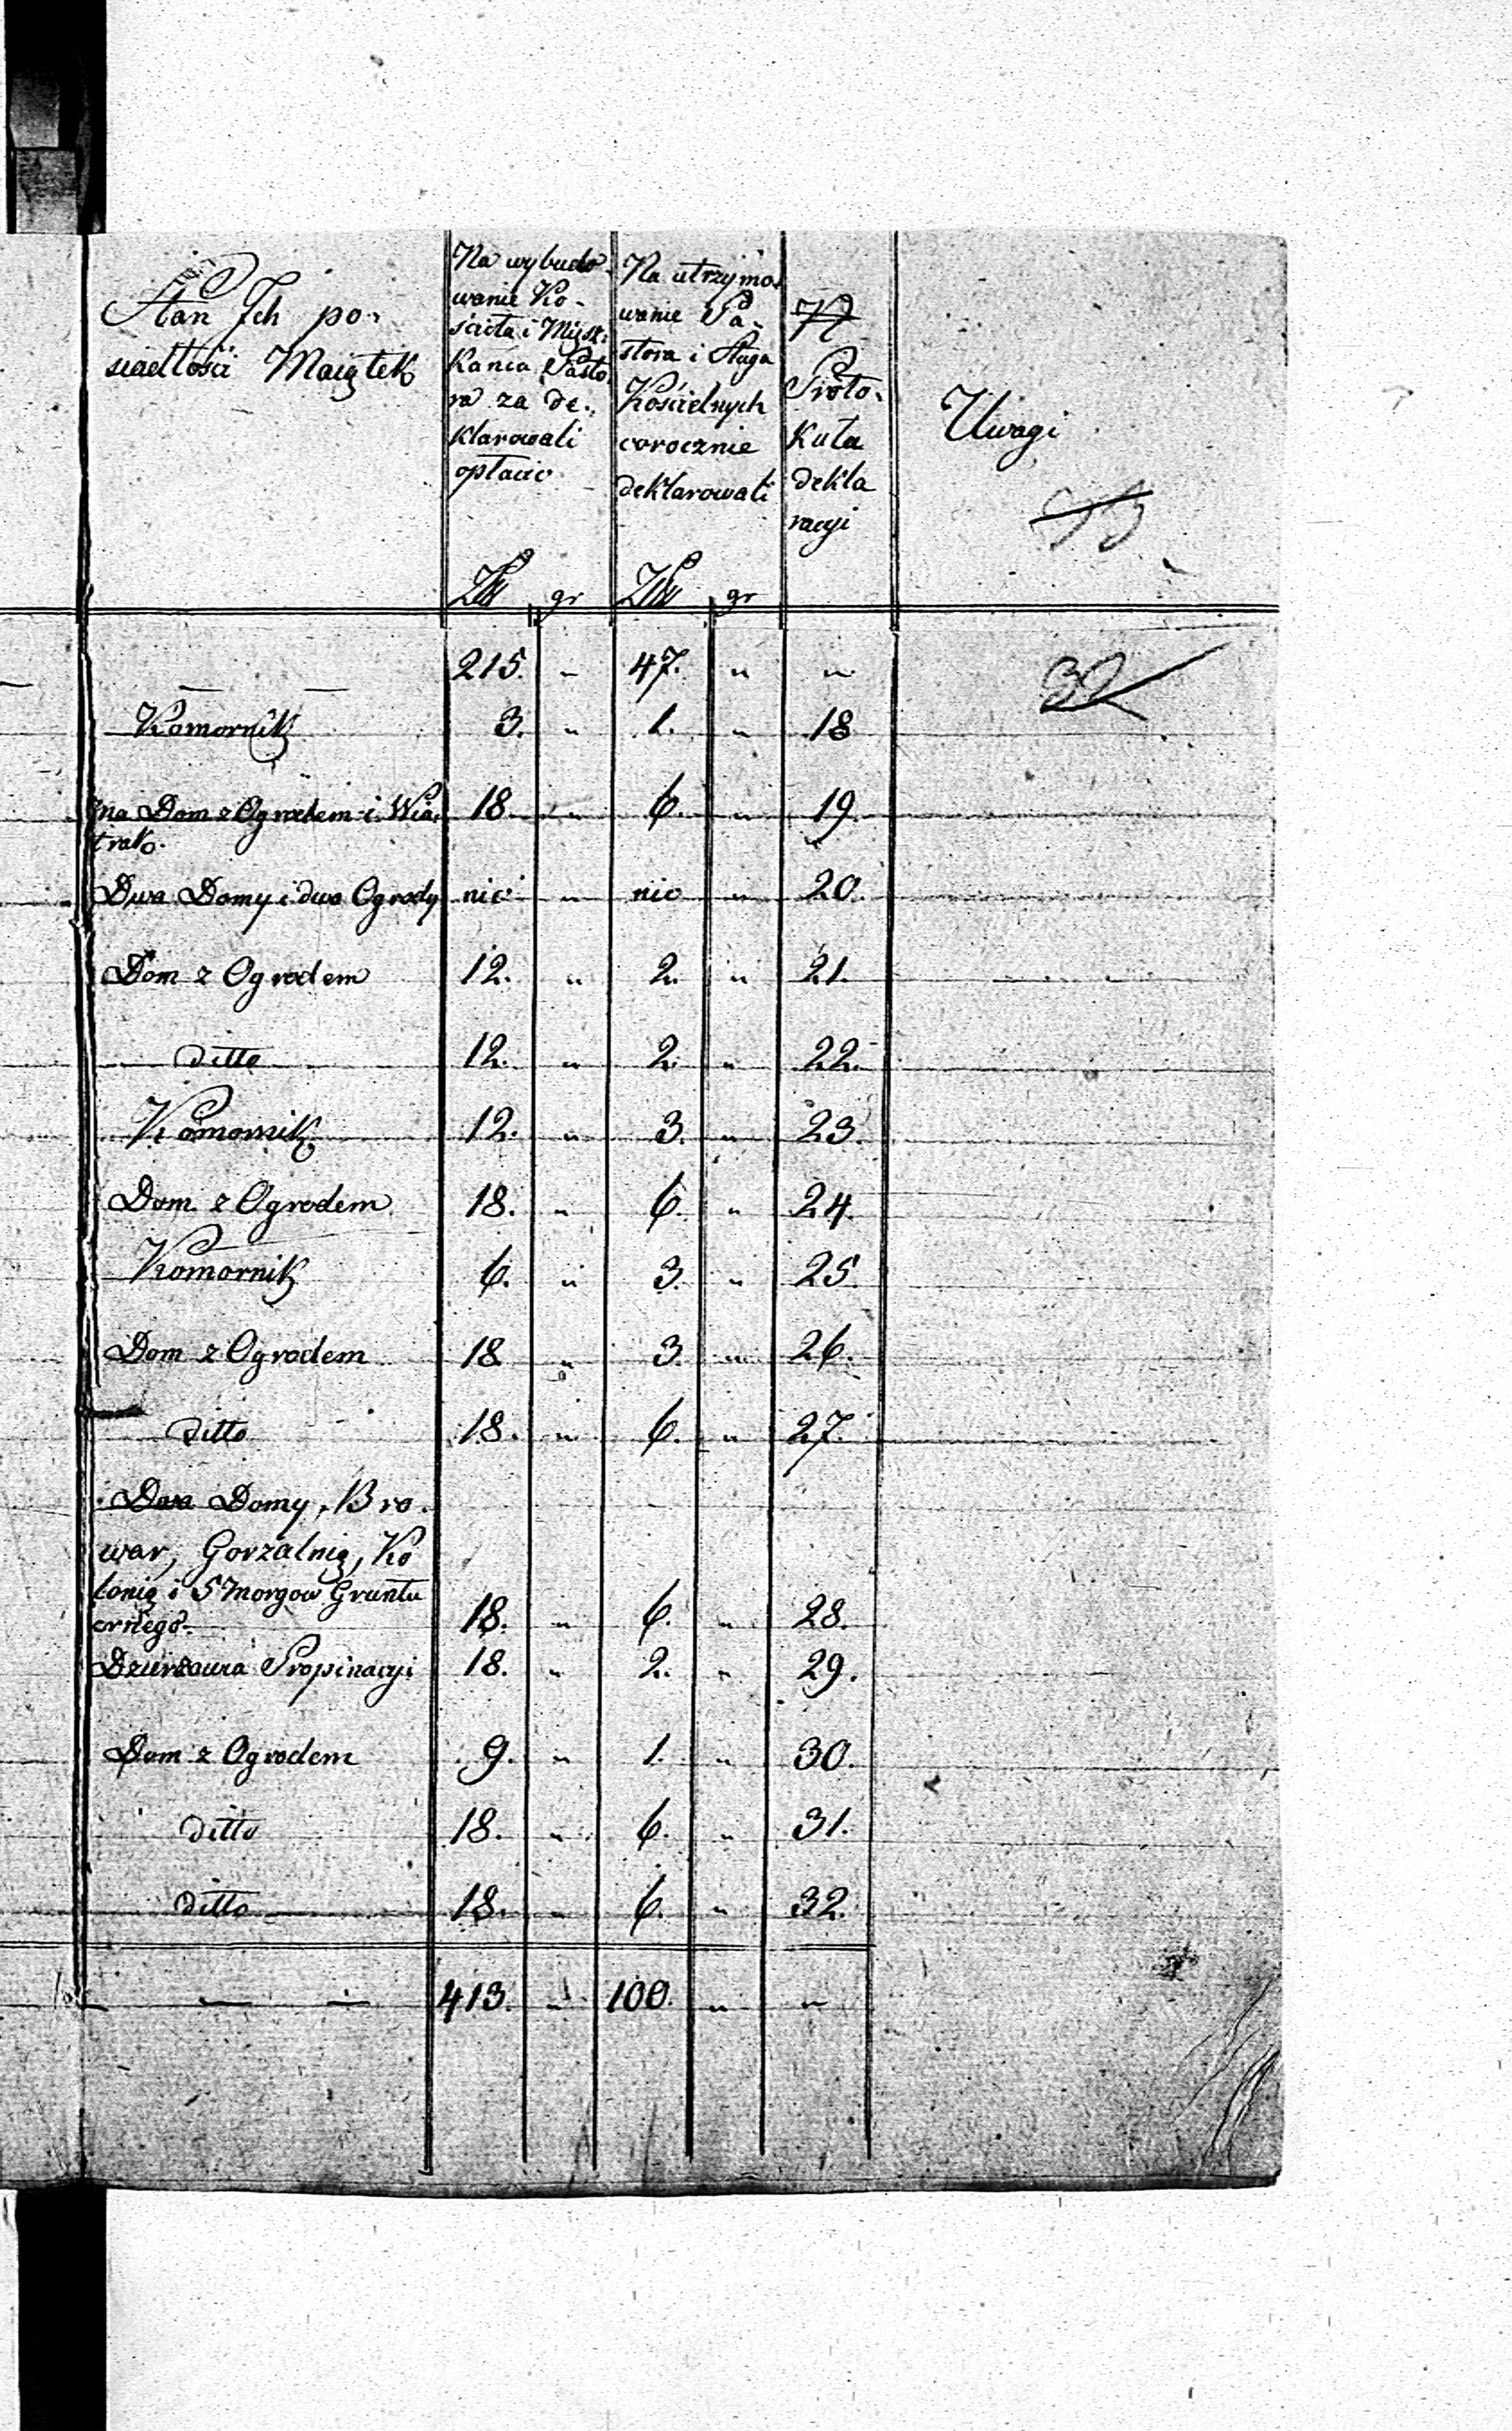 Stan Ich po-
siadłości Maiątek
Na wybudo-
wanie Ko-
ścioła i Miysz-
kania Pasto
ra za de-
klarowali
opłacić
Złł gr
Na utrzymo-
wanie Pa-
stora i Sługa
Kościelnych
corocznie
deklarowali
Złł gr
N
Proto-
kuła
dekla
racyi
Uwagi
— — 215. " 47. " "
32
Komornik 3. " 1. " 18
na Dom z Ogrodem i Wia- 18. " 6. " 19
trak.
Dwa Domy i dwa Ogrody nic " nic " 20.
Dom z Ogrodem 12. " 2. " 21.
ditto 12. " 2. " 22.
Komornik 12. " 3. " 23.
Dom z Ogrodem 18. " 6. " 24.
Komornik 6. " 3. " 25.
Dom z Ogrodem 18 " 3. " 26.
ditto 18. " 6. " 27.
Dwa Domy, Bro-
war, Gorzalnią, Ko
lonią i 5 Morgow Gruntu
ornego 18. " 6. " 28.
Dzierzawa Propinacyi 18. " 2. " 29.
Dom z Ogrodem 9. " 1. " 30.
ditto 18. " 6. " 31.
ditto 18. " 6. " 32.
— — 413. " 100. " "